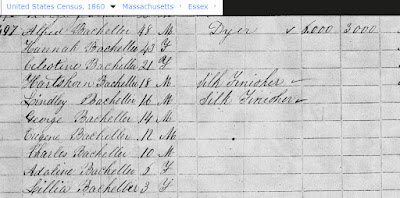 United States Census, 1860 Massachusetts Essex
497 Alfred Bacheller 48 M Dyer x 6,000 3,000
Hannah Bacheller 43 F
Celestine Bacheller 21 F
Hartshorn Bacheller 18 M Silk Finisher
Lindley Bacheller 16 M Silk Finisher
George Bacheller 14 M
Eugene Bacheller 12 M
Charles Bacheller 10 M
Adaline Bacheller 5 F
Lillia Bacheller 3 F